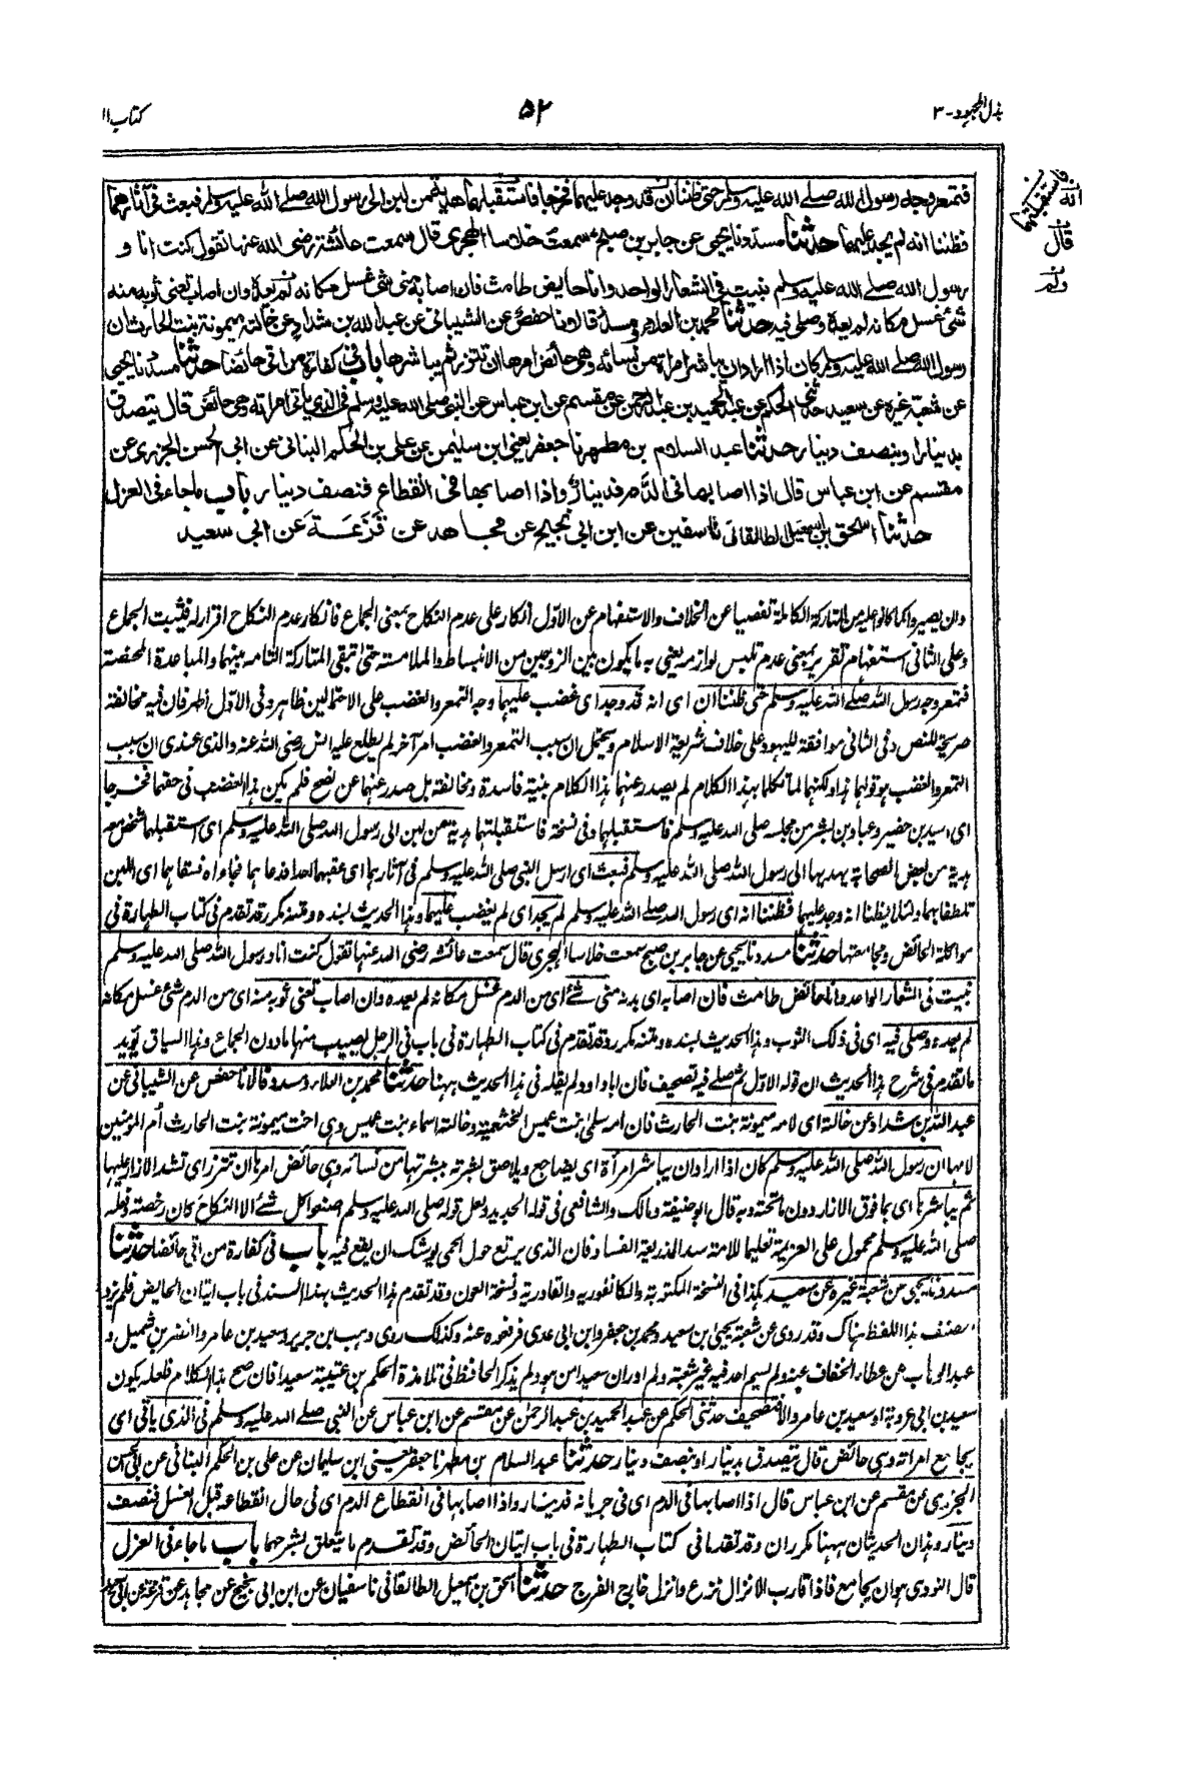 بذل المجهود - ٣
٥٢
كتاب ١١
فاستقبلتهما
قال
ولم
فتمعر وجه رسول الله صلى الله عليه وسلم حتى ظننا ان قد وجد عليهما فخرجا فاستقبلتهما هدية من لبن الى رسول الله صلى الله عليه وسلم فبعث في آثارهما
فظننا انه لم يجد عليهما حدثنا مسدد نا يحيى عن جابر بن صبح سمعت خلاسا الهجرى قال سمعت عائشة رضى الله عنها تقول كنت انا و
رسول الله صلى الله عليه وسلم نبيت فى الشعار الواحد وانا حايض طامث فان اصابه منى شئ غسل مكانه لم يعده وان اصاب تعنى ثوبه منه
شئ غسل مكانه لم يعده وصلى فيه حدثنا محمد بن العلاء ومسدد قالا نا حفص عن الشيبانى عن عبد الله بن شداد عن خالته ميمونة بنت الحارث ان
رسول الله صلى الله عليه وسلم كان اذا اراد ان يباشر امرأة من نسائه وهى حائض امرها ان تتزر ثم يباشرها باب فى كفارة من اتى حائضا حدثنا مسدد نا يحيى
عن شعبة غيره عن سعيد حدثنى الحكم عن عبد الحميد بن عبد الرحمن عن مقسم عن ابن عباس عن النبى صلى الله عليه وسلم فى الذى ياتى امراته وهى حائض قال يتصدق
بدينار او بنصف دينار حدثنا عبد السلام بن مطهر نا جعفر يعنى ابن سليمن عن على بن الحكم البنانى عن ابى الحسن الجزرى عن
مقسم عن ابن عباس قال اذا اصابها فى الدم فدينار واذا اصابها فى انقطاع فنصف دينار باب ماجاء فى العزل
حدثنا اسحق بن اسمعيل الطالقانى نا سفين عن ابن ابى نجيح عن مجاهد عن قزعة عن ابى سعيد
وان يصيروا كما كانوا عليه من المتاركة الكاملة تفصيا عن الخلاف والاستفهام عن الاول انكار على عدم النكاح بمعنى الجماع فانكار عدم النكاح اقرار له فيثبت الجماع
وعلى الثانى استفهام تقرير بمعنى عدم تلبس لوازمه يعنى به ما يكون بين الزوجين من الانبساط والملامسة حتى تبقى المتاركة التامة بينهما والمباعدة المحضة
فتمعر وجه رسول الله صلى الله عليه وسلم حتى ظننا ان اى انه قد وجد اى غضب عليهما وجه التمعر والغضب على الاحتمالين ظاهر وفى الاول اظهر فان فيه مخالفة
صريحة للنص وفى الثانى موافقة لليهود على خلاف شريعة الاسلام ويحتمل ان سبب التمعر والغضب امر آخر لم يطلع عليه انس رضى الله عنه والذى عندى ان سبب
التمعر والغضب هو قولهما هذا ولكنهما لما تكلما بهذا الكلام لم يصدر عنهما هذا الكلام بنية فاسدة ومخالفة بل صدر عنهما عن نصح فلم يكن هذا الغضب فى حقهما فخرجا
اى اسيد بن حضير وعباد بن بشر من مجلسه صلى الله عليه وسلم فاستقبلهما وفى نسخة فاستقبلتهما هدية من لبن الى رسول الله صلى الله عليه وسلم اى استقبلهما شخص معه
هدية من بعض الصحابة يهديها الى رسول الله صلى الله عليه وسلم فبعث اى ارسل النبى صلى الله عليه وسلم فى آثارهما اى عقبهما احدا فدعاهما فجاءاه فسقاهما اى اللبن
تلطفا بهما ولئلا يظنا انه وجد عليهما فظننا انه اى رسول الله صلى الله عليه وسلم لم يجد اى لم يغضب عليهما وهذا الحديث بسنده ومتنه مكرر قد تقدم فى كتاب الطهارة فى
مواكلة الحائض ومجامعتها حدثنا مسدد نا يحيى عن جابر بن صبح سمعت خلاسا الهجرى قال سمعت عائشة رضى الله عنها تقول كنت انا ورسول الله صلى الله عليه وسلم
نبيت فى الشعار الواحد وانا حائض طامث فان اصابه اى بدنه منى شئ اى من الدم غسل مكانه لم يعده وان اصاب تعنى ثوبه منه اى من الدم شئ غسل مكانه
لم يعده وصلى فيه اى فى ذلك الثوب وهذا الحديث بسنده ومتنه مكرر وقد تقدم فى كتاب الطهارة فى باب فى الرجل يصيب منها ما دون الجماع وهذا السياق يؤيد
ما تقدم فى شرح هذا الحديث ان قوله الاول ثم صلى فيه تصحيف فان ابا داود لم يقله فى هذا الحديث ههنا حدثنا محمد بن العلاء ومسدد قالا نا حفص عن الشيبانى عن
عبد الله بن شداد عن خالته اى لامه ميمونة بنت الحارث فان امه سلمى بنت عميس الخثعمية وخالته اسماء بنت عميس وهى اخت ميمونة بنت الحارث أم المؤمنين
لامها ان رسول الله صلى الله عليه وسلم كان اذا اراد ان يباشر امرأة اى يضاجع ويلاصق بشرته بشرتها من نسائه وهى حائض امرها ان تتزر اى تشد الازار عليها
ثم يباشرها اى بما فوق الازار دون ما تحته وبه قال ابو حنيفة ومالك والشافعى فى قوله الجديد ولعل قوله صلى الله عليه وسلم اصنعوا كل شئ الا النكاح كان رخصة وفعله
صلى الله عليه وسلم محمول على العزيمة تعليما للامة سدا لذريعة الفساد فان الذى يرتع حول الحمى يوشك ان يقع فيه باب فى كفارة من اتى حائضا حدثنا
مسدد نا يحيى عن شعبة غيره عن سعيد هكذا فى النسخة المكتوبة والكانفورية والقادرية ونسخة العون وقد تقدم هذا الحديث بهذا السند فى باب اتيان الحايض فلم يزد
المصنف هذا اللفظ هناك وقد روى عن شعبة يحيى بن سعيد ومحمد بن جعفر وابن ابى عدى فرفعوه عنه وكذلك روى وهب بن جرير وسعيد بن عامر والنضر بن شميل و
عبد الوهاب عن عطاء الخفاف عنه ولم يسم احد فيه غير شعبة ولم ادر ان سعيدا من هو ولم يذكر الحافظ فى تلامذة الحكم بن عتيبة سعيدا فان صح هذا الكلام فلعله يكون
سعيد بن ابى عروبة او سعيد بن عامر والا فتصحيف حدثنى الحكم عن عبد الحميد بن عبد الرحمن عن مقسم عن ابن عباس عن النبى صلى الله عليه وسلم فى الذى ياتى اى
يجامع امراته وهى حائض قال يتصدق بدينار او بنصف دينار حدثنا عبد السلام بن مطهر نا جعفر يعنى ابن سليمان عن على بن الحكم البنانى عن ابى الحسن
الجزرى عن مقسم عن ابن عباس قال اذا اصابها فى الدم اى فى جريانه فدينار واذا اصابها فى انقطاع الدم اى فى حال انقطاعه قبل الغسل فنصف
دينار وهذان الحديثان ههنا مكرران وقد تقدما فى كتاب الطهارة فى باب اتيان الحائض وقد تقدم ما يتعلق بشرحهما باب ماجاء فى العزل
قال النووى هو ان يجامع فاذا قارب الانزال نزع وانزل خارج الفرج حدثنا اسحق بن اسمعيل الطالقانى نا سفيان عن ابن ابى نجيح عن مجاهد عن قزعة عن ابى سعيد